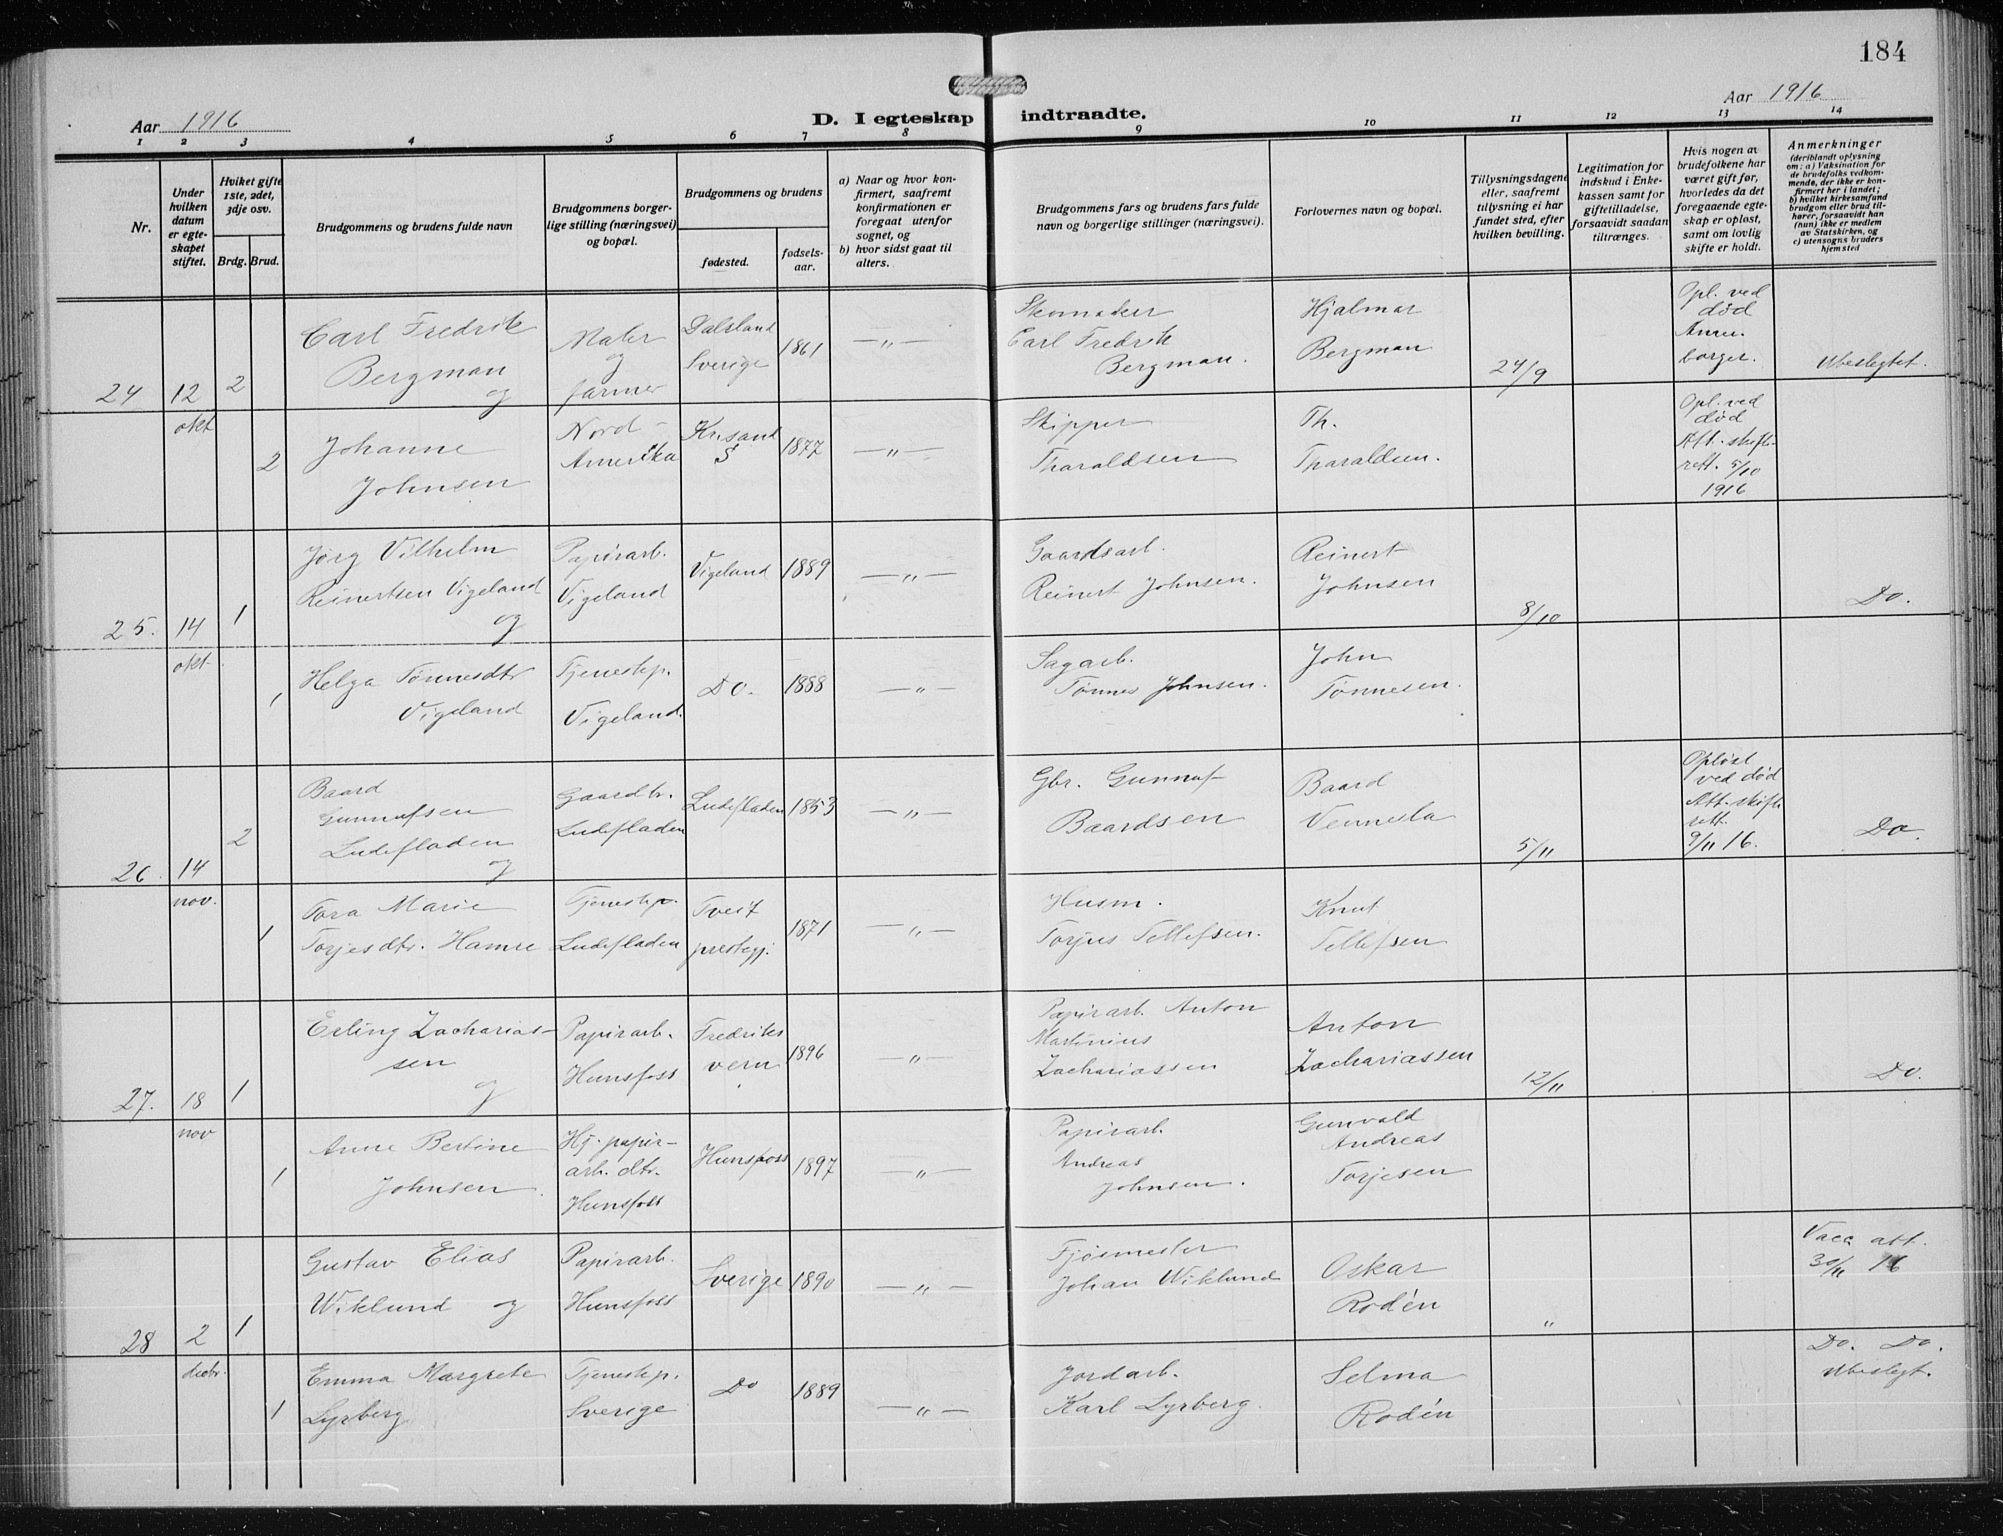 184
Aar 1916
D. I egteskap indtraadte.
Aar 1916
1 2 3 4 5 6 7 8 9 10 11 12 13 14
Nr.
Under hvilken datum er egteskapet stiftet.
Hviket gifte 1ste, 2det, 3dje osv.
Brdg. Brud.
Brudgommens og brudens fulde navn
Brudgommens borgerlige stilling (næringsvei) og bopæl.
Brudgommens og brudens
fødested.
fødselsaar.
a) Naar og hvor konfirmert, saafremt konfirmationen er foregaat utenfor sognet, og
b) hvor sidst gaat til alters.
Brudgommens fars og brudens fars fulde navn og borgerlige stillinger (næringsvei).
Forlovernes navn og bopæl.
Tillysningsdagene eller, saafremt tillysning ei har fundet sted, efter hvilken bevilling.
Legitimation for indskud i Enkekassen samt for giftetilladelse, forsaavidt saadan tiltrænges.
Hvis nogen av brudefolkene har været gift før, hvorledes da det foregaaende egteskap er opløst, samt om lovlig skifte er holdt.
Anmerkninger
(deriblandt oplysning om: a) Vaksination for de brudefolks vedkommende, der ikke er konfirmert her i landet; b) hvilket kirkesamfund brudgom eller brud tilhører, forsaavidt han (hun) ikke er medlem av Statskirken, og c) utensogns bruders hjemsted
24 12 okt 2 Carl Fredrik Bergman og
Maler og farmer
Dalsland Sverige 1861 — „ —
Skomaker Carl Fredrik Bergman.
Hjalmar Bergman
24/9
Opl. ved død
borger.
Ubeslegtet.
2 Johanne Johnsen
Nord-Amerika
Krisand S 1877 — „ —
Skipper Tharaldsen
Th. Tharaldsen.
Opl. ved død Att. skifterett. 5/10 1916
25. 14 okt 1 Jørg Vilhelm Reinertsen Vigeland og
Papirarb. Vigeland
Vigeland 1889 — „ —
Gaardsarb. Reinert Johnsen.
Reinert Johnsen
8/10
Do.
1 Helga Tønnesdtr Vigeland
Tjenestep. Vigeland.
Do. 1888 — „ —
Sagarb. Tønnes Johnsen.
John Tønnesen.
26. 14 nov. 2 Baard Gunnufsen Ludefladen og
Gaardbr. Ludefladen
Ludefladen 1853 — „ —
Gbr. Gunnuf Baardsen
Baard Vennesla
5/11
Opløst ved død Att. skifterett. 9/11 16.
Do.
1 Tora Marie Torjesdtr. Hamre
Tjenestep. Ludefladen
Tveit prestegj. 1871 — „ —
Husm. Torjus Tellefsen.
Knut Tellefsen
27. 18 nov 1 Erling Zachariassen og
Papirarb. Hunsfoss
Fredriksvern 1896 — „ —
Papirarb. Anton Martinius Zachariassen
Anton Zachariassen
12/11
Do.
1 Anne Bertine Johnsen.
Hj. papirarb. dtr. Hunsfoss
Hunsfoss 1897 — „ —
Papirarb. Andreas Johnsen.
Gunvald Andreas Torjesen
28 2 decbr. 1 Gustav Elias Wiklund og
Papirarb. Hunsfoss
Sverige 1890 — „ —
Fjøsmester Johan Wiklund
Oskar Rodén
„
Vacc. att. 30/11 16
1 Emma Margrete Lyrberg
Tjenestep. Sverige
Do 1889 — „ —
Jordarb. Karl Lyrberg.
Selma Rodén
Do. Do. Ubeslegt.